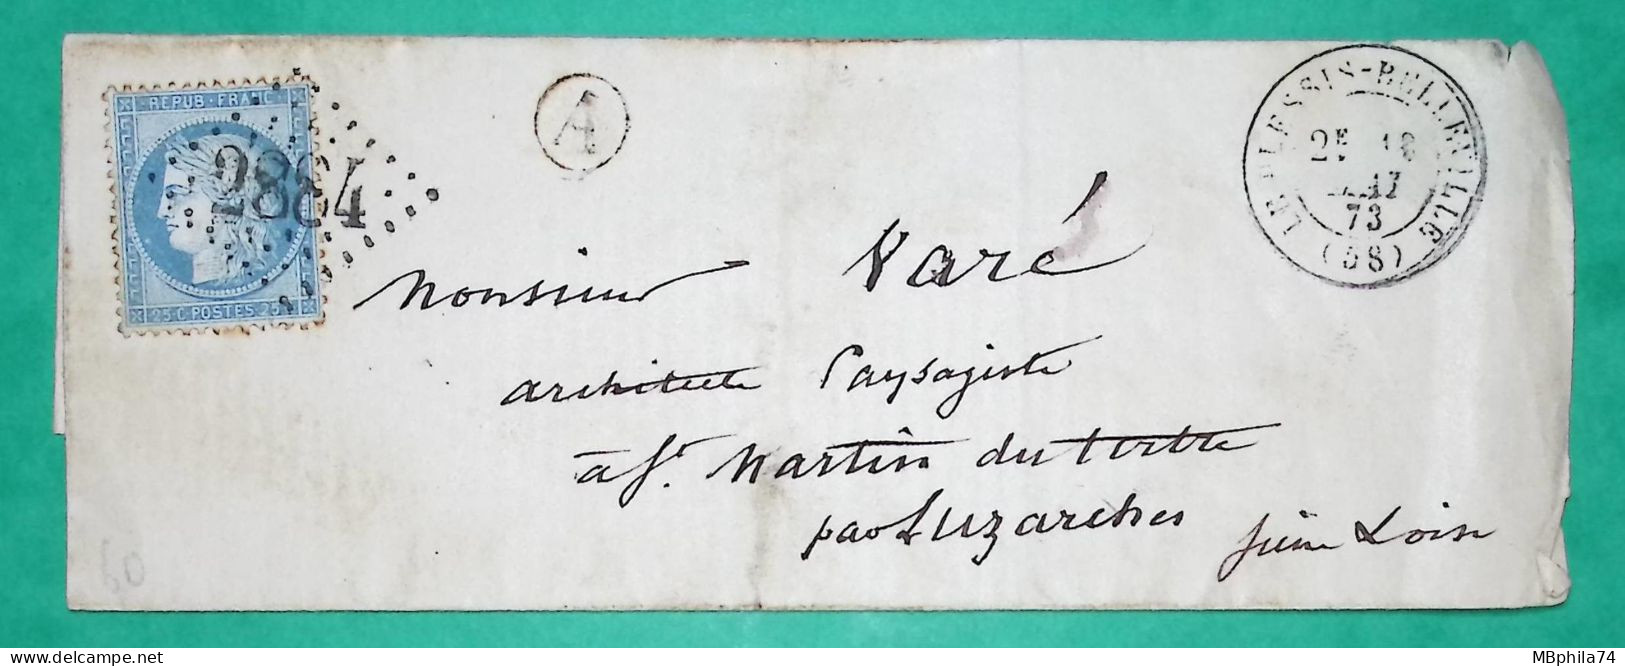 REPUB·FRANC
2884
25·C·POSTES·25
A
LE PLESSIS-BELLEVILLE
2E 18
73
(58)
Monsieur Varé
architecte Paysagiste
à St. Martin du tertre
par Luzarches
Seine & Oise
60
MBphila74